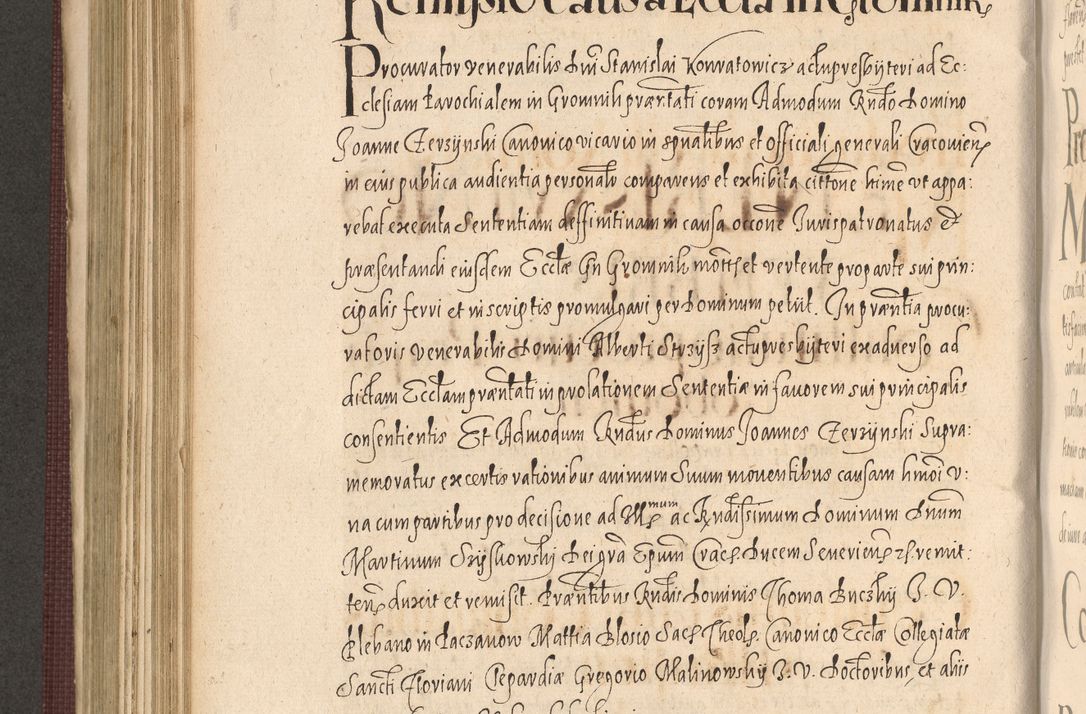 Remissio causæ Eccłæ in Gromnik
Procurator venerabilis dnī Stanislai Konratowicz actupresbyteri ad Ec:
clesiam Parochialem in Gromnik præntati coram Admodum Rndo Domino
Joanne Czerzynski Canonico vicario in spualibus et officiali generali Cracovien
in eius publica audientia personalr comparens et exhibita cittone himē ut appa:
rebat executa Sententiam deffinitivam in causa occone Jurispatronatus et
præsentandi eiusdem Eccłæ In Gromnik mott et vertente pro parte sui prin:
cipalis ferri et in scriptis promulgari per Dominum petiit. In præntia procu:
ratoris venerabilis Domini Alberti Strzysz actupresbyteri ex adverso ad
dictam Eccłam præntati in prolationem Sententiæ in favorem sui principalis
consentientis Et Admodum Rndus Dominus Joannes Czerzynski Supra:
memoratus ex certis rationibus animum Suum moventibus causam hmōi u:
na cum partibus pro decisione ad Illmum ac Rndissimum Dominum Dnum
Martinum Szyskowski Dei grā Epum Crac Ducem Severien et remit:
ten duxit et remisit. Præntibus Rndis Dominis Thoma Buczky J. V.
Plebano in Paczanow Mattia Blosio Sac Theol Canonico Eccłæ Collegiatæ
Sancti Floriani Clepardiæ Gregorio Malinowsky J. V. Doctoribus, et aliis